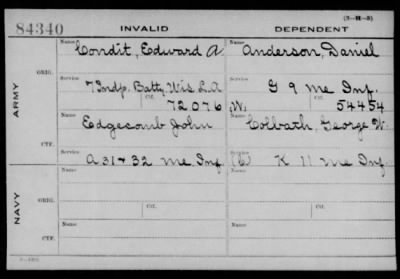 (3-H-3)
84340 INVALID DEPENDENT
ARMY
ORIG.
Name Condit, Edward A Name Anderson, Daniel
Service 7 Indp. Batty Wis L.A Service G 9 Me Inf.
Ctf. 72076 W. Ctf. 54454
CTF.
Name Edgecomb John Name Colbath, George W.
Service A 31 & 32 Me Inf Service K 11 Me Inf
NAVY
ORIG.
Name Name
Ctf. Ctf.
CTF.
Name Name